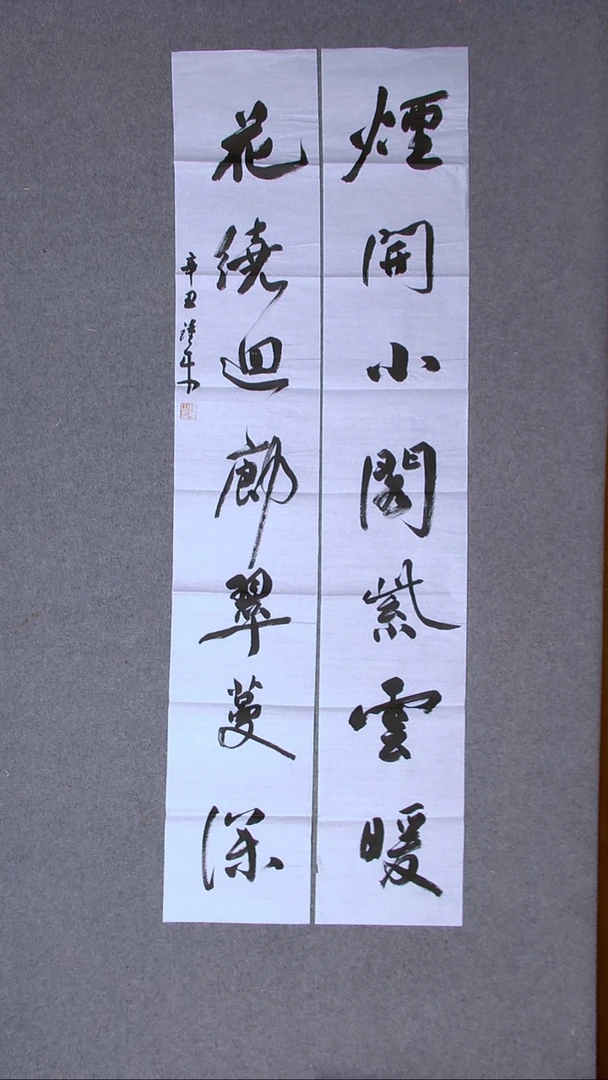 煙開小閣紫雲暖
花繞迴廊翠蔓深
辛丑